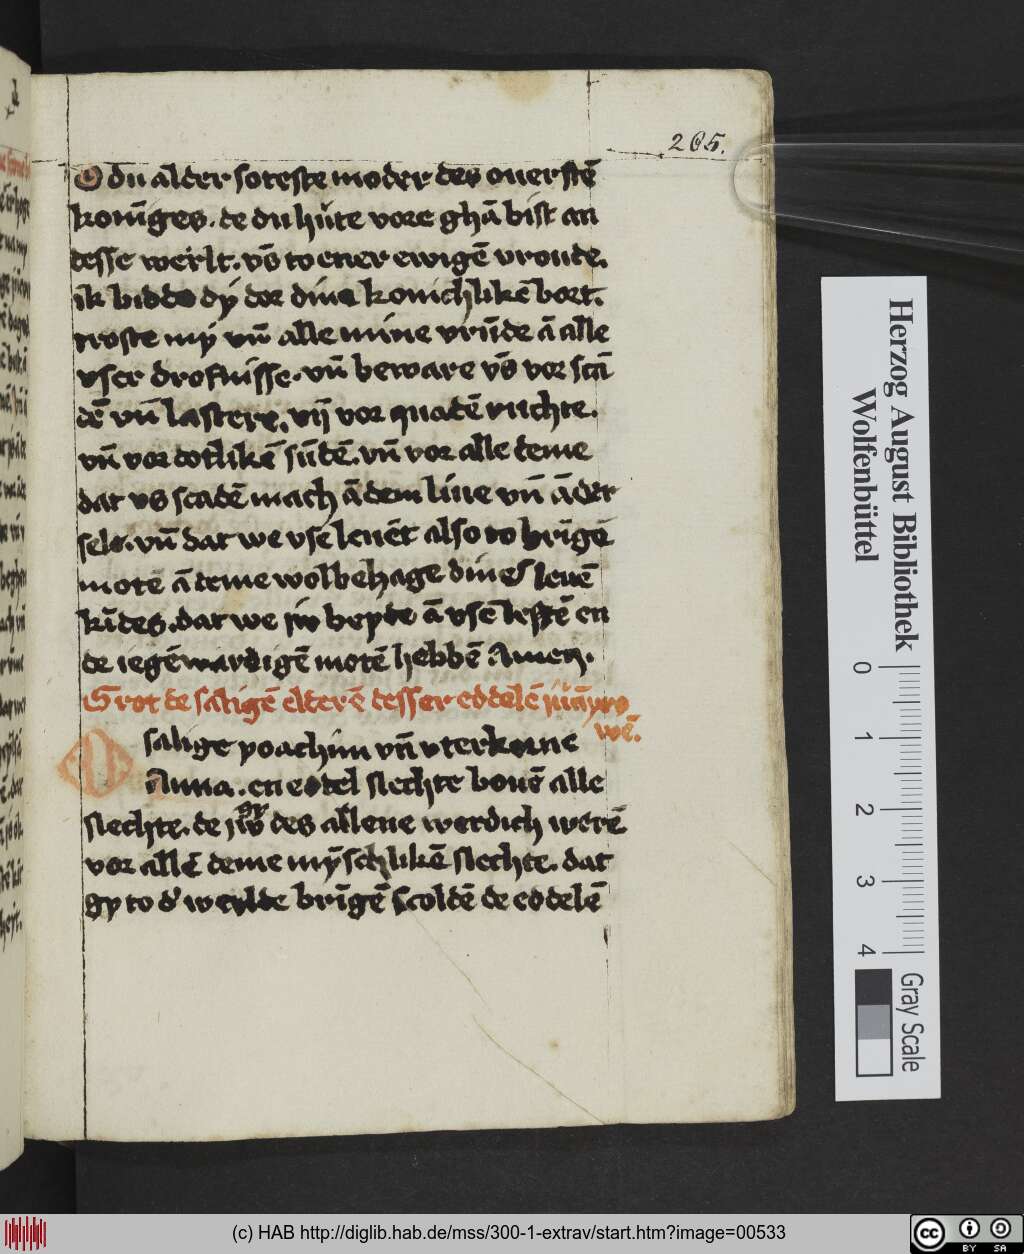 265.
O du alder soteste moder des ouerstē
konīges. de du hute vore ghā bist an
desse werlt. vō to ener ewigē vroude.
ik bidde dy dor dine konichlikē bort.
troste my vn̄ alle mine vrūde ā alle
vser drofnisse. vn̄ beware vs vor scā
dē vn̄ lastere, vn̄ vor quadē ruchte.
vn̄ vor dotlikē sūdē. vn̄ vor alle deme
dat vs scadē mach ā dem liue vn̄ ā der
sele. vn̄ dat we vse leuēt also to brīgē
motē ā deme wolbehage dines leuē
kīdes. dat we iw beyde ā vsē lestē en
de iegēwardigē motē hebbē Amen.
Grot de saligē elderē desser eddelē iūcvro
wē.
O salige yoachim vn̄ vterkorne
Anna. en eddel slechte bouē alle
slechte. de iw des allene werdich werē
vor allē deme mȳschlikē slechte. dat
gy to d' werlde brīgē scoldē de eddelē
Herzog August Bibliothek
Wolfenbüttel
0 1 2 3 4
Gray Scale
(c) HAB http://diglib.hab.de/mss/300-1-extrav/start.htm?image=00533
cc BY SA